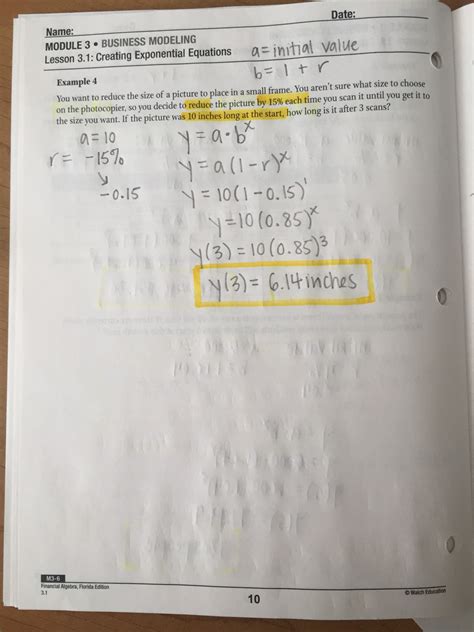 Date:
Name:
MODULE 3 • BUSINESS MODELING
Lesson 3.1: Creating Exponential Equations
a = initial value
b = 1 + r
Example 4
You want to reduce the size of a picture to place in a small frame. You aren't sure what size to choose
on the photocopier, so you decide to reduce the picture by 15% each time you scan it until you get it to
the size you want. If the picture was 10 inches long at the start, how long is it after 3 scans?
a = 10
y = a • bˣ
r = -15%
y = a(1-r)ˣ
-0.15
y = 10(1-0.15)¹
y = 10(0.85)ˣ
y(3) = 10(0.85)³
y(3) = 6.14 inches
M3-6
Financial Algebra, Florida Edition
3.1
10
© Walch Education